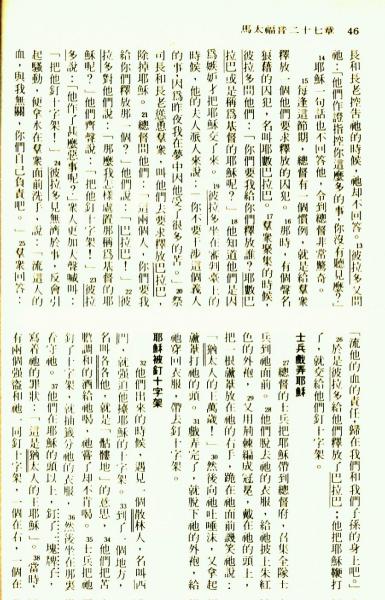 馬太福音二十七章 46
長和長老控告祂的時候,祂却不回答。13彼拉多又問
祂:「他們作證指控你這麼多的事,你沒有聽見麼?」
14耶穌一句話也不回答他,令到總督非常驚奇。
15每逢這節期,總督有一個慣例,就是給羣衆
釋放一個他們要求釋放的囚犯。16那時,有個聲名
狼藉的囚犯,名叫耶數巴拉巴。17羣衆聚集的時候,
彼拉多問他們:「你們要我給你們釋放誰?耶數巴
拉巴或是稱爲基督的耶穌呢?」18他知道他們是因
爲嫉妒才把耶穌交了來。19彼拉多坐在審判臺上的
時候,他的夫人派人來說:「你不要干涉這個義人
的事,因爲昨夜我在夢中因他受了很多的苦。」20祭
司長和長老慫恿羣衆,叫他們去要求釋放巴拉巴,
除掉耶穌。21總督問他們:「這兩個人,你們要我
給你們釋放那一個?」他們說:「巴拉巴!」22彼
拉多對他們說:「那麼我怎樣處置那稱爲基督的耶
穌呢?」他們齊聲說:「把他釘十字架!」23彼拉
多說:「他作了甚麼惡事呢?」衆人更加大聲喊叫:
「把他釘十字架!」24彼拉多見無濟於事,反會引
起騷動,便拿水在羣衆面前洗手,說:「流這人的
血,與我無關,你們自己負責吧。」25羣衆回答:
「流他的血的責任歸在我們和我們子孫的身上吧。」
26於是彼拉多給他們釋放了巴拉巴;他把耶穌鞭打
了,就交給他們釘十字架。
士兵戲弄耶穌
27總督的士兵把耶穌帶到總督府,召集全隊士
兵到祂面前。28他們脫去祂的衣服,給祂披上朱紅
色的外袍,29又用荆棘編成冠冕,戴在祂的頭上,
把一根蘆葦放在祂的右手,跪在祂面前譏笑祂說:
「猶太人的王萬歲!」30然後向祂吐唾沫,又拿起
蘆葦打祂的頭。31戲弄完了,就脫下祂的外袍,給
祂穿回衣服,帶去釘十字架。
耶穌被釘十字架
32他們出來的時候,遇見一個散林人,名叫西
門,就強迫他擡耶穌的十字架。33到了一個地方,
名叫各各他,就是「骷髏地」的意思,34他們把苦
膽調和的酒給祂喝,祂嘗了却不肯喝。35士兵把祂
釘了十字架,就抽籤分祂的衣服,36然後坐在那裏
看守祂。37他們在耶穌的頭以上,釘了一塊牌子,
寫着祂的罪狀:「這是猶太人的王耶穌」。38當時,
有兩個強盜和祂一同釘十字架,一個在右,一個在